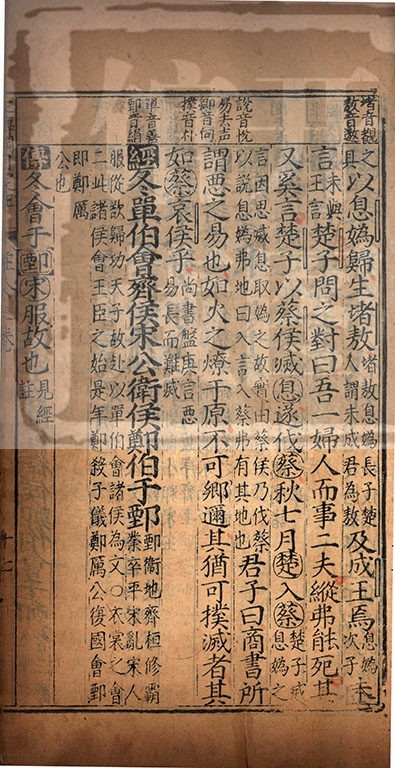 堵音覩
敖音遨
之以息媯歸生堵敖堵敖息媯長子楚人謂未成君為敖及成王焉息媯次子未
言未與王言楚子問之對曰吾一婦人而事二夫縱弗能死其
又奚言楚子以蔡侯滅息遂伐蔡秋七月楚入蔡楚子滅息媯之
說音悅
易去声
鄉音向
撲音朴
言因思滅息取媯之故嘗由蔡侯乃伐蔡
以說息媯弗地曰入言入蔡弗有其地也君子曰商書所
謂惡之易也如火之燎于原不可鄉邇其猶可撲滅者其
如蔡哀侯乎尚書盤庚言惡易長而難滅
單音善
鄄音絹
經冬單伯會齊侯宋公衛侯鄭伯于鄄鄄衛地齊桓修霸業卒平宋亂宋人
服從欲歸功天子故赴以單伯會諸侯為文○衣裳之會
二此諸侯會王臣之始是年鄭殺子儀鄭厲公復國會鄄
即鄭厲公也
傳冬會于鄄宋服故也見經註